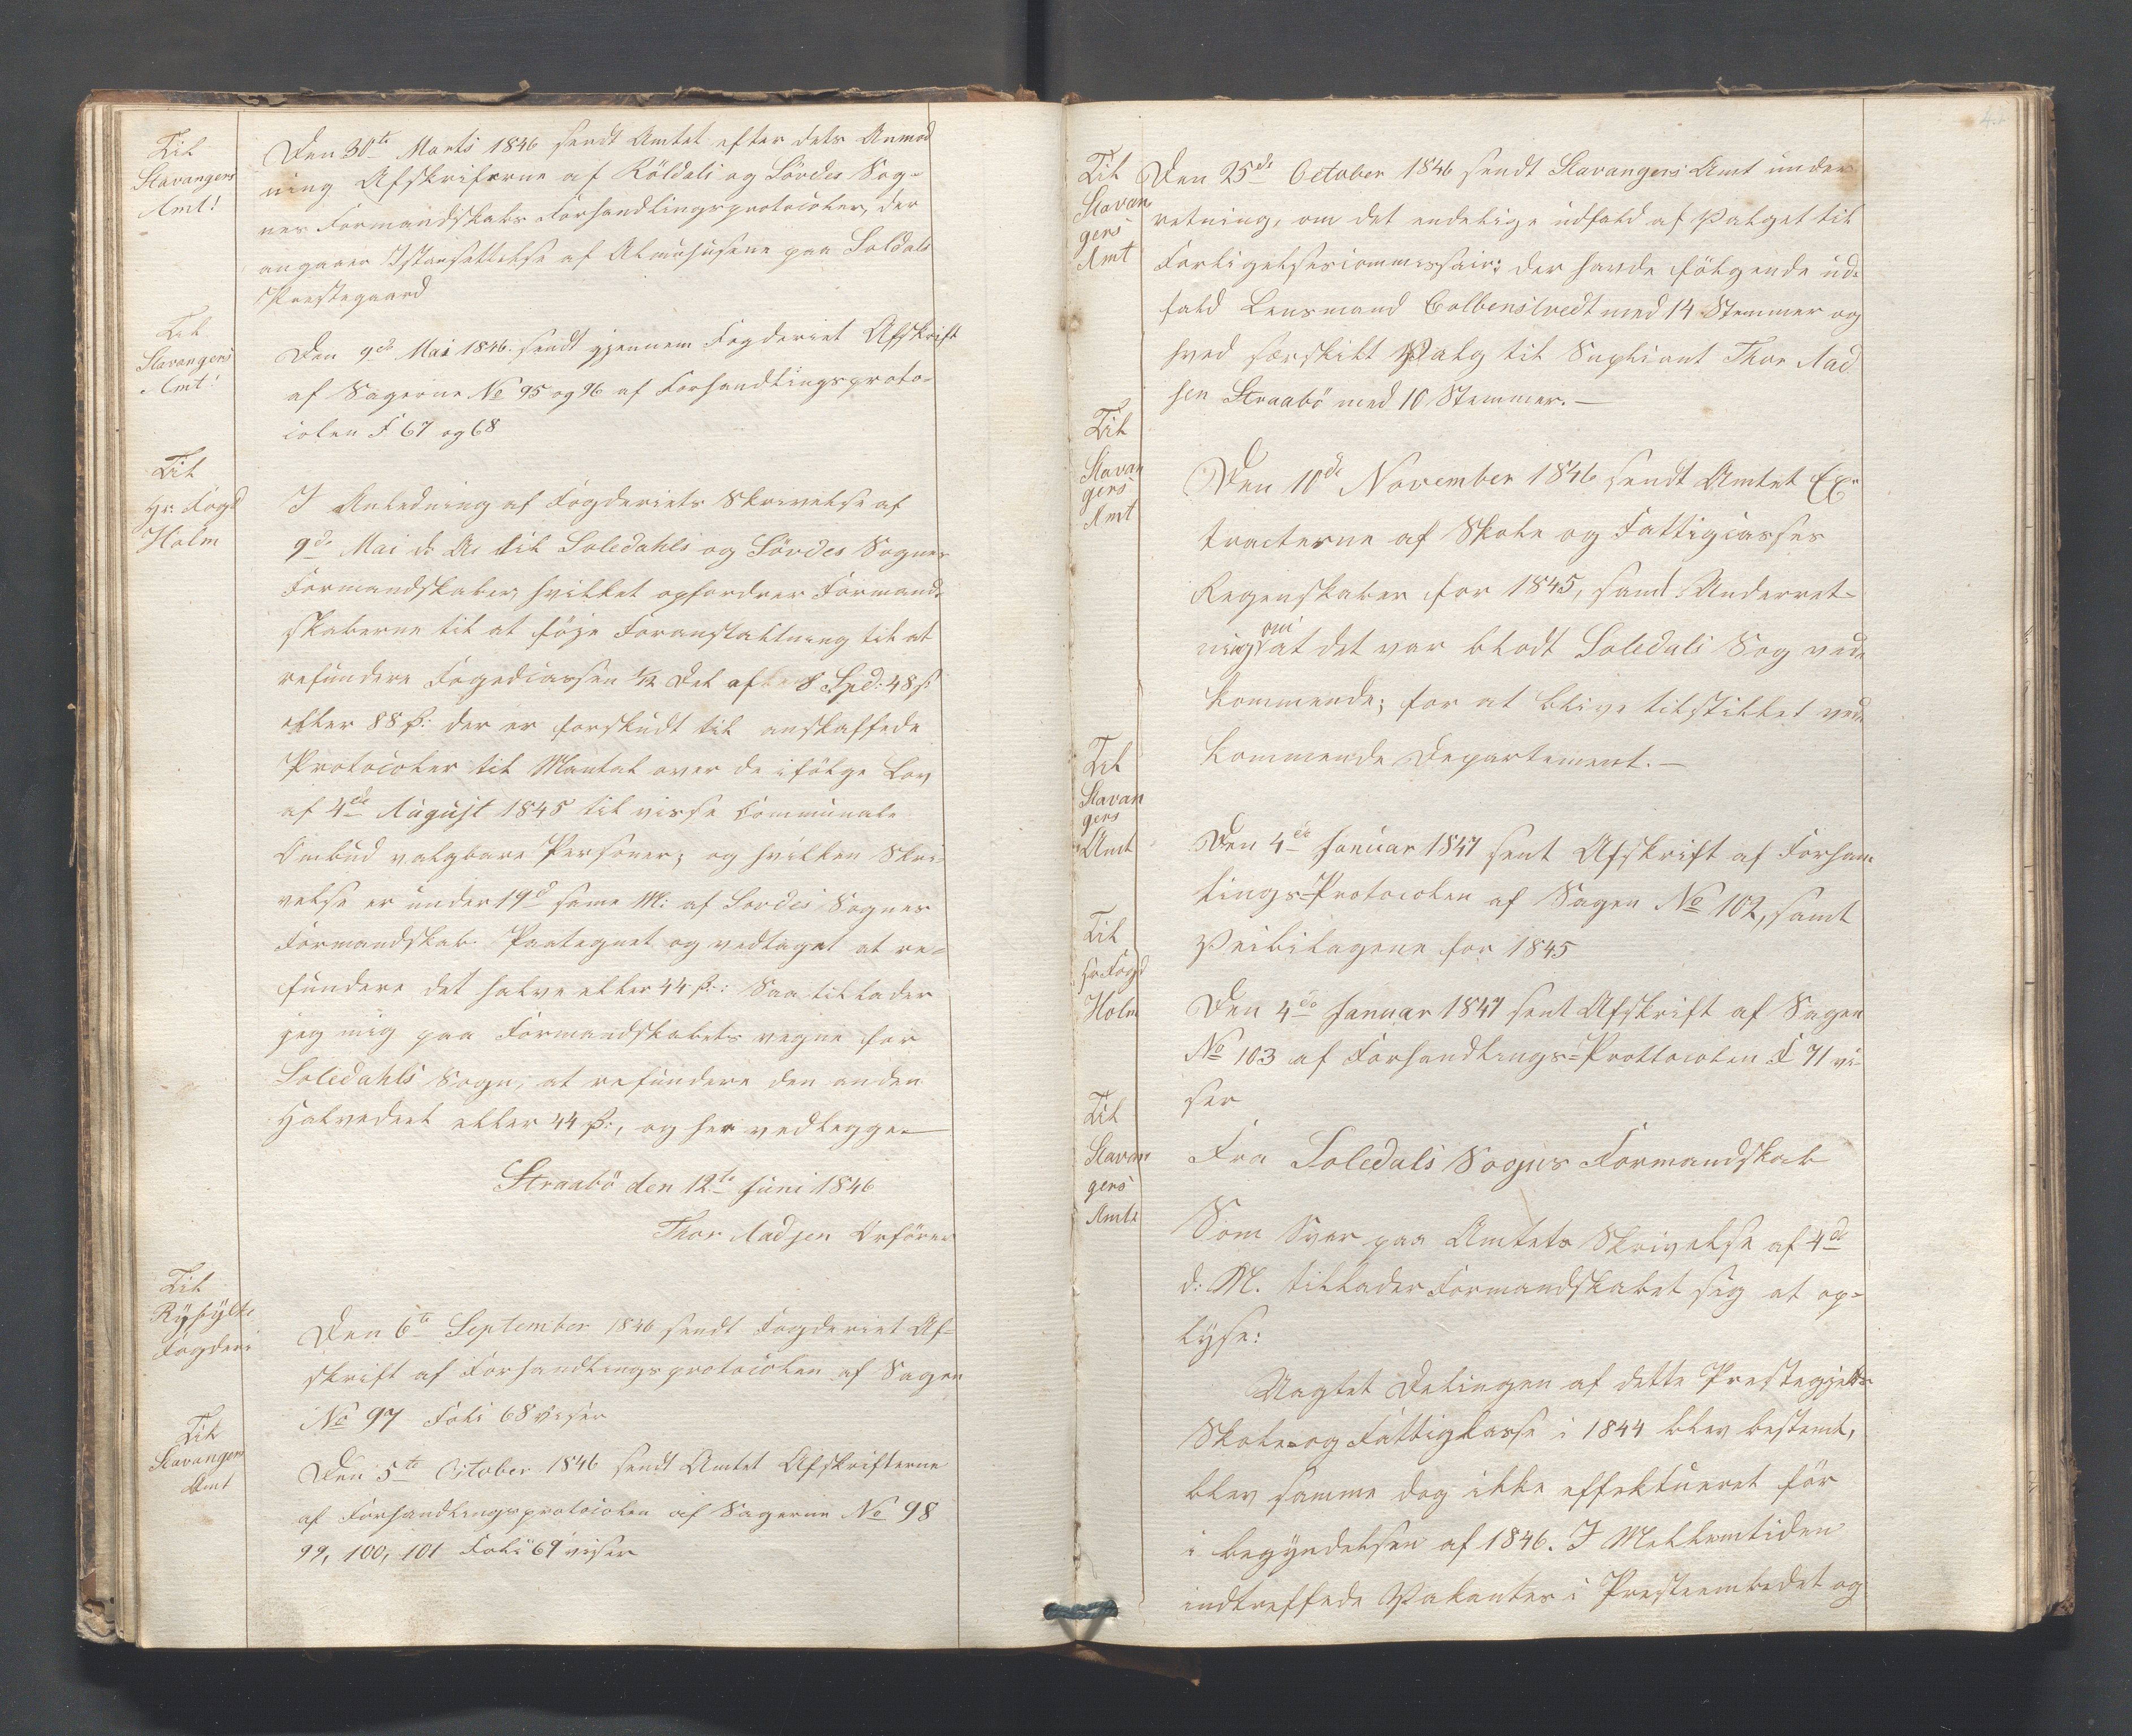 Til
Stavangers
Amt!
Den 30te Marts 1846 sendt Amtet efter dets Anmod
ning Afskrifterne af Röldals og Sövdes Sog-
nes Formandskabs Forhandlingsprotocoler, der
angaaer Istansættelse af Almuhusene paa Soldals
Prestegaard
Til
Stavangers
Amt!
Den 9de Mai 1846 sendt gjennem Fogderiet Afskrift
af Sagerne No 95 og 96 af Forhandlingsproto-
colen F 67 og 68
Til
Hr. Fogd
Holm
I Anledning af Fogderiets Skrivelse af
9de Mai d: A: til Soledahls og Sövdes Sognes
Formandskaber, hvilket opfordrer Formand-
skaberne til at föje Foranstaltning til at
refundere Fogedcassen 1/12 Del af 8 Spd: 48 s:
eller 88 ß: der er forskudt til anskaffede
Protocoler til Mantal over de ifölge Lov
af 4de August 1845 til visse Communale
Ombud valgbare Personer; og hvilken Skri-
velse er under 19d same M: af Sovdes Sognes
Formandskab Paategnet og vedtaget at re-
fundere det halve eller 44 ß: Saa tillader
jeg mig paa Formandskabets vegne for
Soledahls Sogn, at refundere den anden
Halvedeel eller 44 ß:, og her vedlegges
Straabö den 12te Juni 1846
Thor Aadsen Orförer
Til
Ryfylke
Fogderi
Den 6te September 1846 sendt Fogderiet Af-
skrift af Forhandlingsprotocolen af Sagen
No 97 Foli 68 viser
Til
Stavangers
Amt
Den 5te October 1846 sendt Amtet Afskrifterne
af Forhandlingsprotocolen af Sagerne No 98
99, 100, 101 Foli 69 viser
Til
Stavan
gers
Amt
Den 25de October 1846 sendt Stavangers Amt under
retning, om det endelige udfald af Valget til
Forligelsescommissair; der havde fölgende ud-
fald Lensmand Colbenstvedt med 14 Stemmer og
hved særskilt Valg til Supliant Thor Aad
sen Straabö med 10 Stemmer. —
Til
Stavan
gers
Amt
Den 10de November 1846 sendt Amtet Ex-
tracterne af Skole og Fattigcasses
Regenskaber for 1845, samt Underret-
ning om at det var blodt Soledals Sog ved-
kommende; for at blive tilstillet ved-
kommende Departement. —
Til
Stavan
gers
Amt
Den 4de Januar 1847 sent Afskrift af Forhan-
lings-Protocolen af Sagen No 102, samt
Veibilagene for 1845
Til
Hr Fogd
Holm
Den 4de Januar 1847 sent Afskrift af Sagen
No 103 af Forhandlings-Prottocolen F 71 vi-
ser
Til
Stavan
gers
Amts
Fra Soledals Sogns Formandskab
Som Svar paa Amtets Skrivelse af 4de
d: M. tillader Formandskabet sig at op-
lyse:
Uagtet Delingen af dette Prestegjelds
Skole- og Fattigkasse i 1844 blev bestemt,
blev samme dog ikke effektueret för
i begyndelsen af 1846. I Mellemtiden
indtreffede Vakantser i Presteembedet og